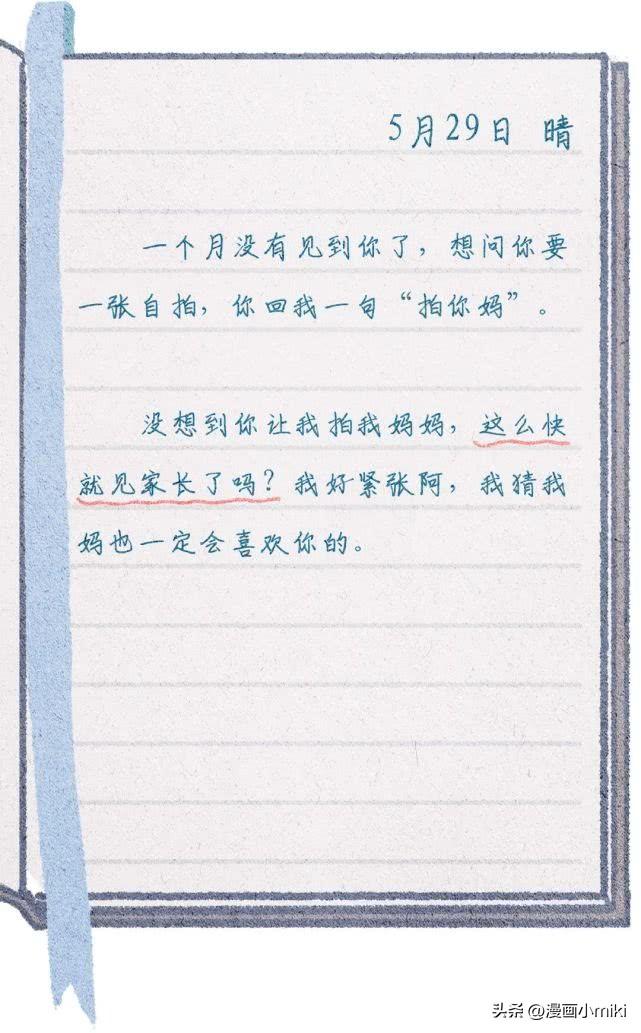 5月29日 晴
一个月没有见到你了，想问你要
一张自拍，你回我一句“拍你妈”。
没想到你让我拍我妈妈，这么快
就见家长了吗？我好紧张阿，我猜我
妈也一定会喜欢你的。
头条 @漫画小miki